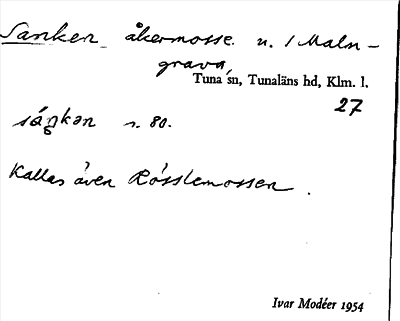 Sanken åkermosse. u. / Malm-
grava,
Tuna sn, Tunaläns hd, Klm. l.
27
sáŋkən s. 80.
Kallas även Rösslemossen.
Ivar Modéer 1954